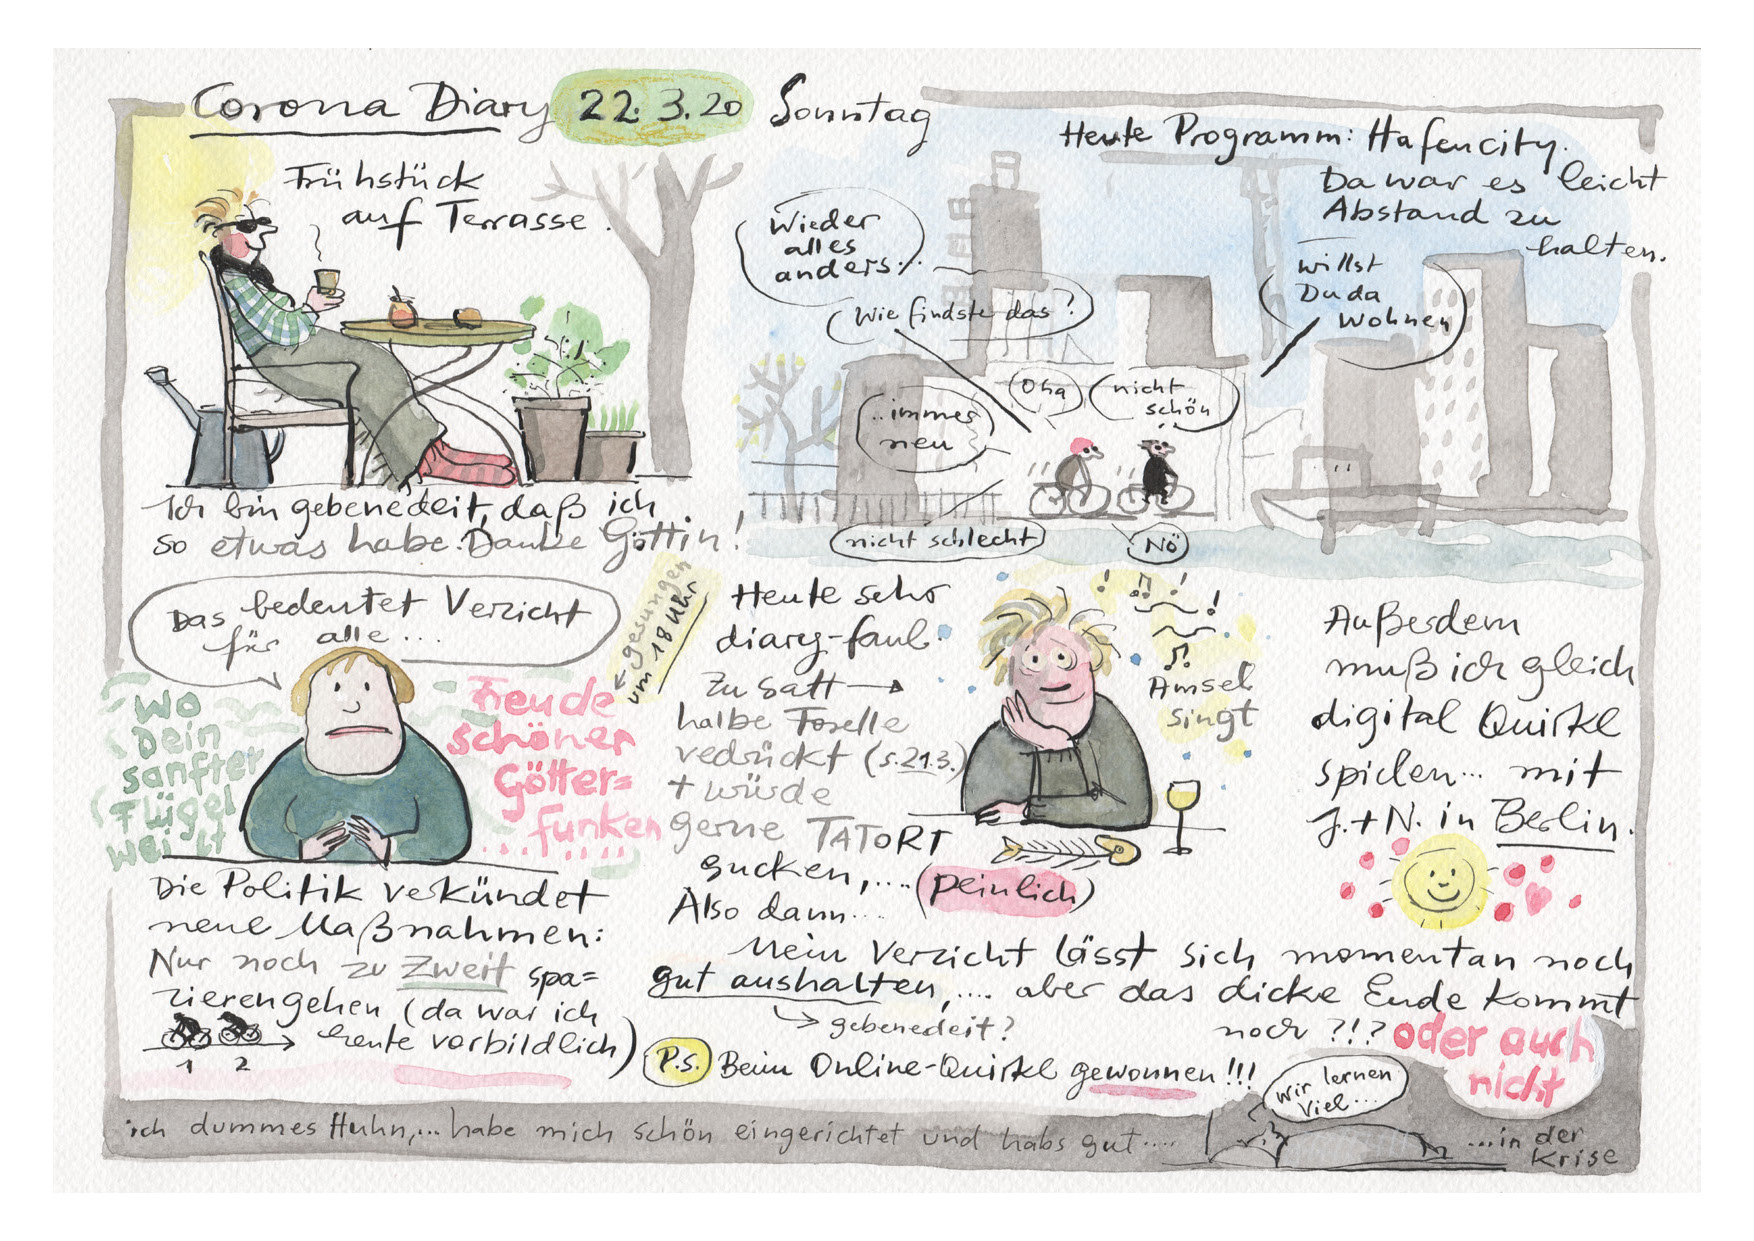 Corona Diary 22.3.20 Sonntag
Frühstück
auf Terrasse.
Ich bin gebenedeit, daß ich
so etwas habe. Danke Göttin!
Heute Programm: Hafencity.
Da war es leicht
Abstand zu
halten.
Wieder
alles
anders...
Wie findste das?
willst
Du da
wohnen
Oha
nicht
schön
..immer
neu
nicht schlecht
Nö
Das bedeutet Verzicht
für alle...
Wo
Dein
sanfter
Flügel
weilt
Freude
schöner
Götter=
funken
gesungen
um 18 Uhr
Die Politik verkündet
neue Maßnahmen:
Nur noch zu Zweit spa=
zierengehen (da war ich
heute vorbildlich)
1 2
Heute sehr
diary-faul.
Zu satt →
halbe Forelle
vedrückt (s.21.3.)
+ würde
gerne TATORT
gucken,....(peinlich)
Also dann...
Amsel
singt
Außerdem
muß ich gleich
digital Quirkle
spielen... mit
J.+N. in Berlin.
Mein Verzicht lässt sich momentan noch
gut aushalten,.... aber das dicke Ende kommt
gebenedeit?
noch ?!? oder auch
nicht
P.S. Beim Online-Quirkel gewonnen!!!
wir lernen
viel...
ich dummes Huhn,... habe mich schön eingerichtet und habs gut....
...in der
Krise